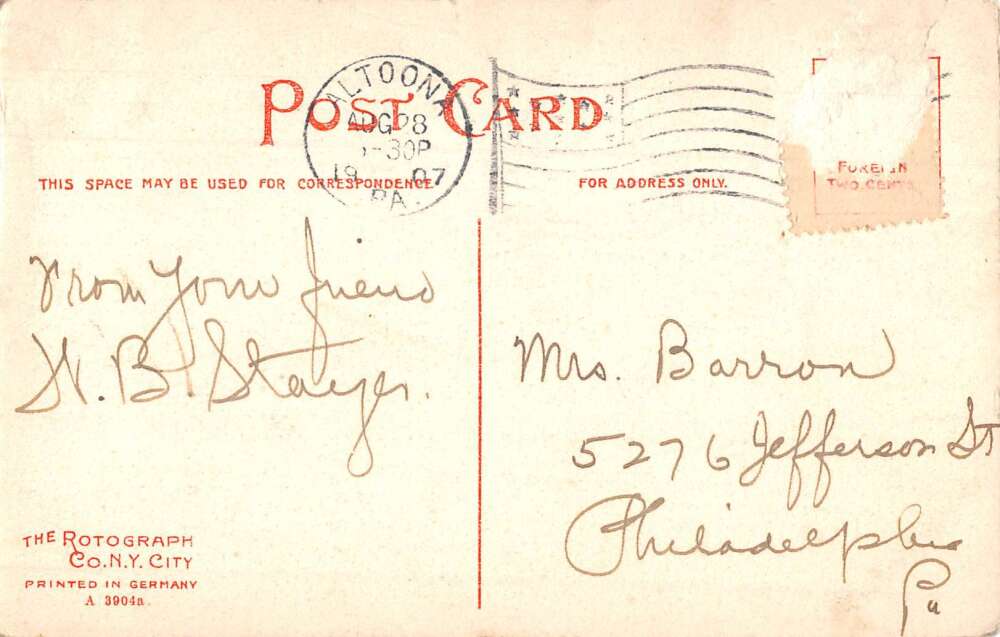 POST CARD
ALTOONA
AUG 28
-30P
19 07
PA.
THIS SPACE MAY BE USED FOR CORRESPONDENCE
FOR ADDRESS ONLY.
FOREIGN
TWO CENTS
From your friend
H. B. Stayer.
Mrs. Barron
5276 Jefferson St
Philadelphia
Pa
THE ROTOGRAPH
CO. N.Y. CITY
PRINTED IN GERMANY
A 3904a.